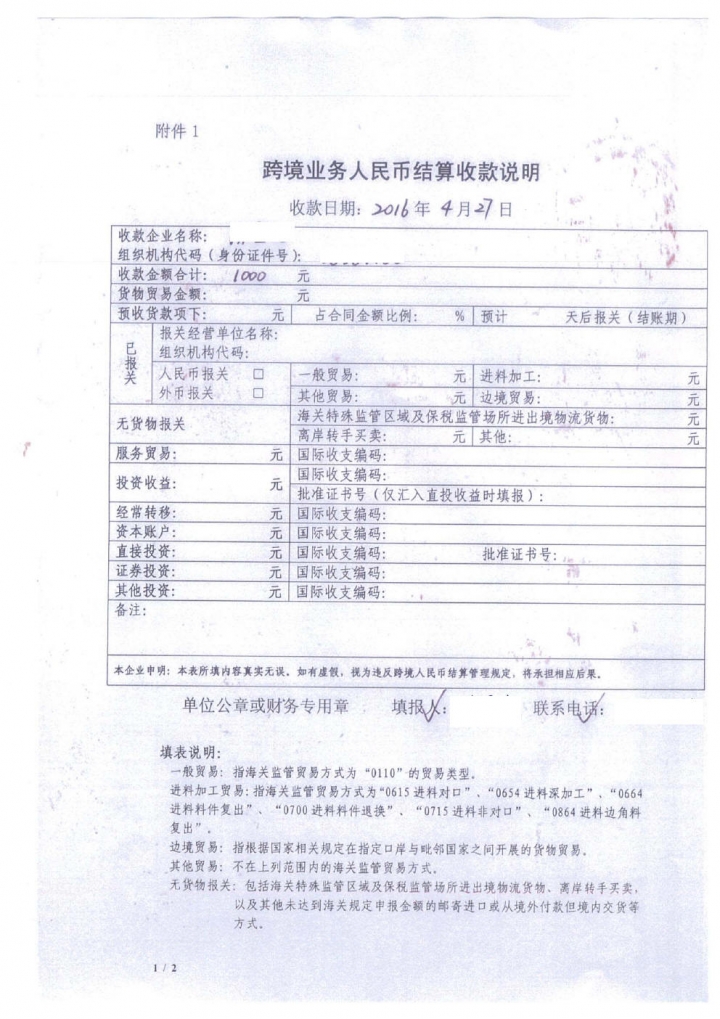 附件 1
跨境业务人民币结算收款说明
收款日期: 2016 年 4 月 27 日
收款企业名称:
组织机构代码（身份证件号）:
收款金额合计: 1000 元
货物贸易金额: 元
预收货款项下: 元 占合同金额比例: % 预计 天后报关（结账期）
已报关
报关经营单位名称:
组织机构代码:
人民币报关 □ 一般贸易: 元 进料加工: 元
外币报关 □ 其他贸易: 元 边境贸易: 元
无货物报关 海关特殊监管区域及保税监管场所进出境物流货物: 元
离岸转手买卖: 元 其他: 元
服务贸易: 元 国际收支编码:
投资收益: 元 国际收支编码:
批准证书号（仅汇入直投收益时填报）:
经常转移: 元 国际收支编码:
资本账户: 元 国际收支编码:
直接投资: 元 国际收支编码: 批准证书号:
证券投资: 元 国际收支编码:
其他投资: 元 国际收支编码:
备注:
本企业申明: 本表所填内容真实无误。如有虚假, 视为违反跨境人民币结算管理规定, 将承担相应后果。
单位公章或财务专用章 填报人: 联系电话:
填表说明:
一般贸易: 指海关监管贸易方式为“0110”的贸易类型。
进料加工贸易: 指海关监管贸易方式为“0615 进料对口”、“0654 进料深加工”、“0664
进料料件复出”、“0700 进料料件退换”、“0715 进料非对口”、“0864 进料边角料
复出”。
边境贸易: 指根据国家相关规定在指定口岸与毗邻国家之间开展的货物贸易。
其他贸易: 不在上列范围内的海关监管贸易方式。
无货物报关: 包括海关特殊监管区域及保税监管场所进出境物流货物、离岸转手买卖,
以及其他未达到海关规定申报金额的邮寄进口或从境外付款但境内交货等
方式。
1 / 2